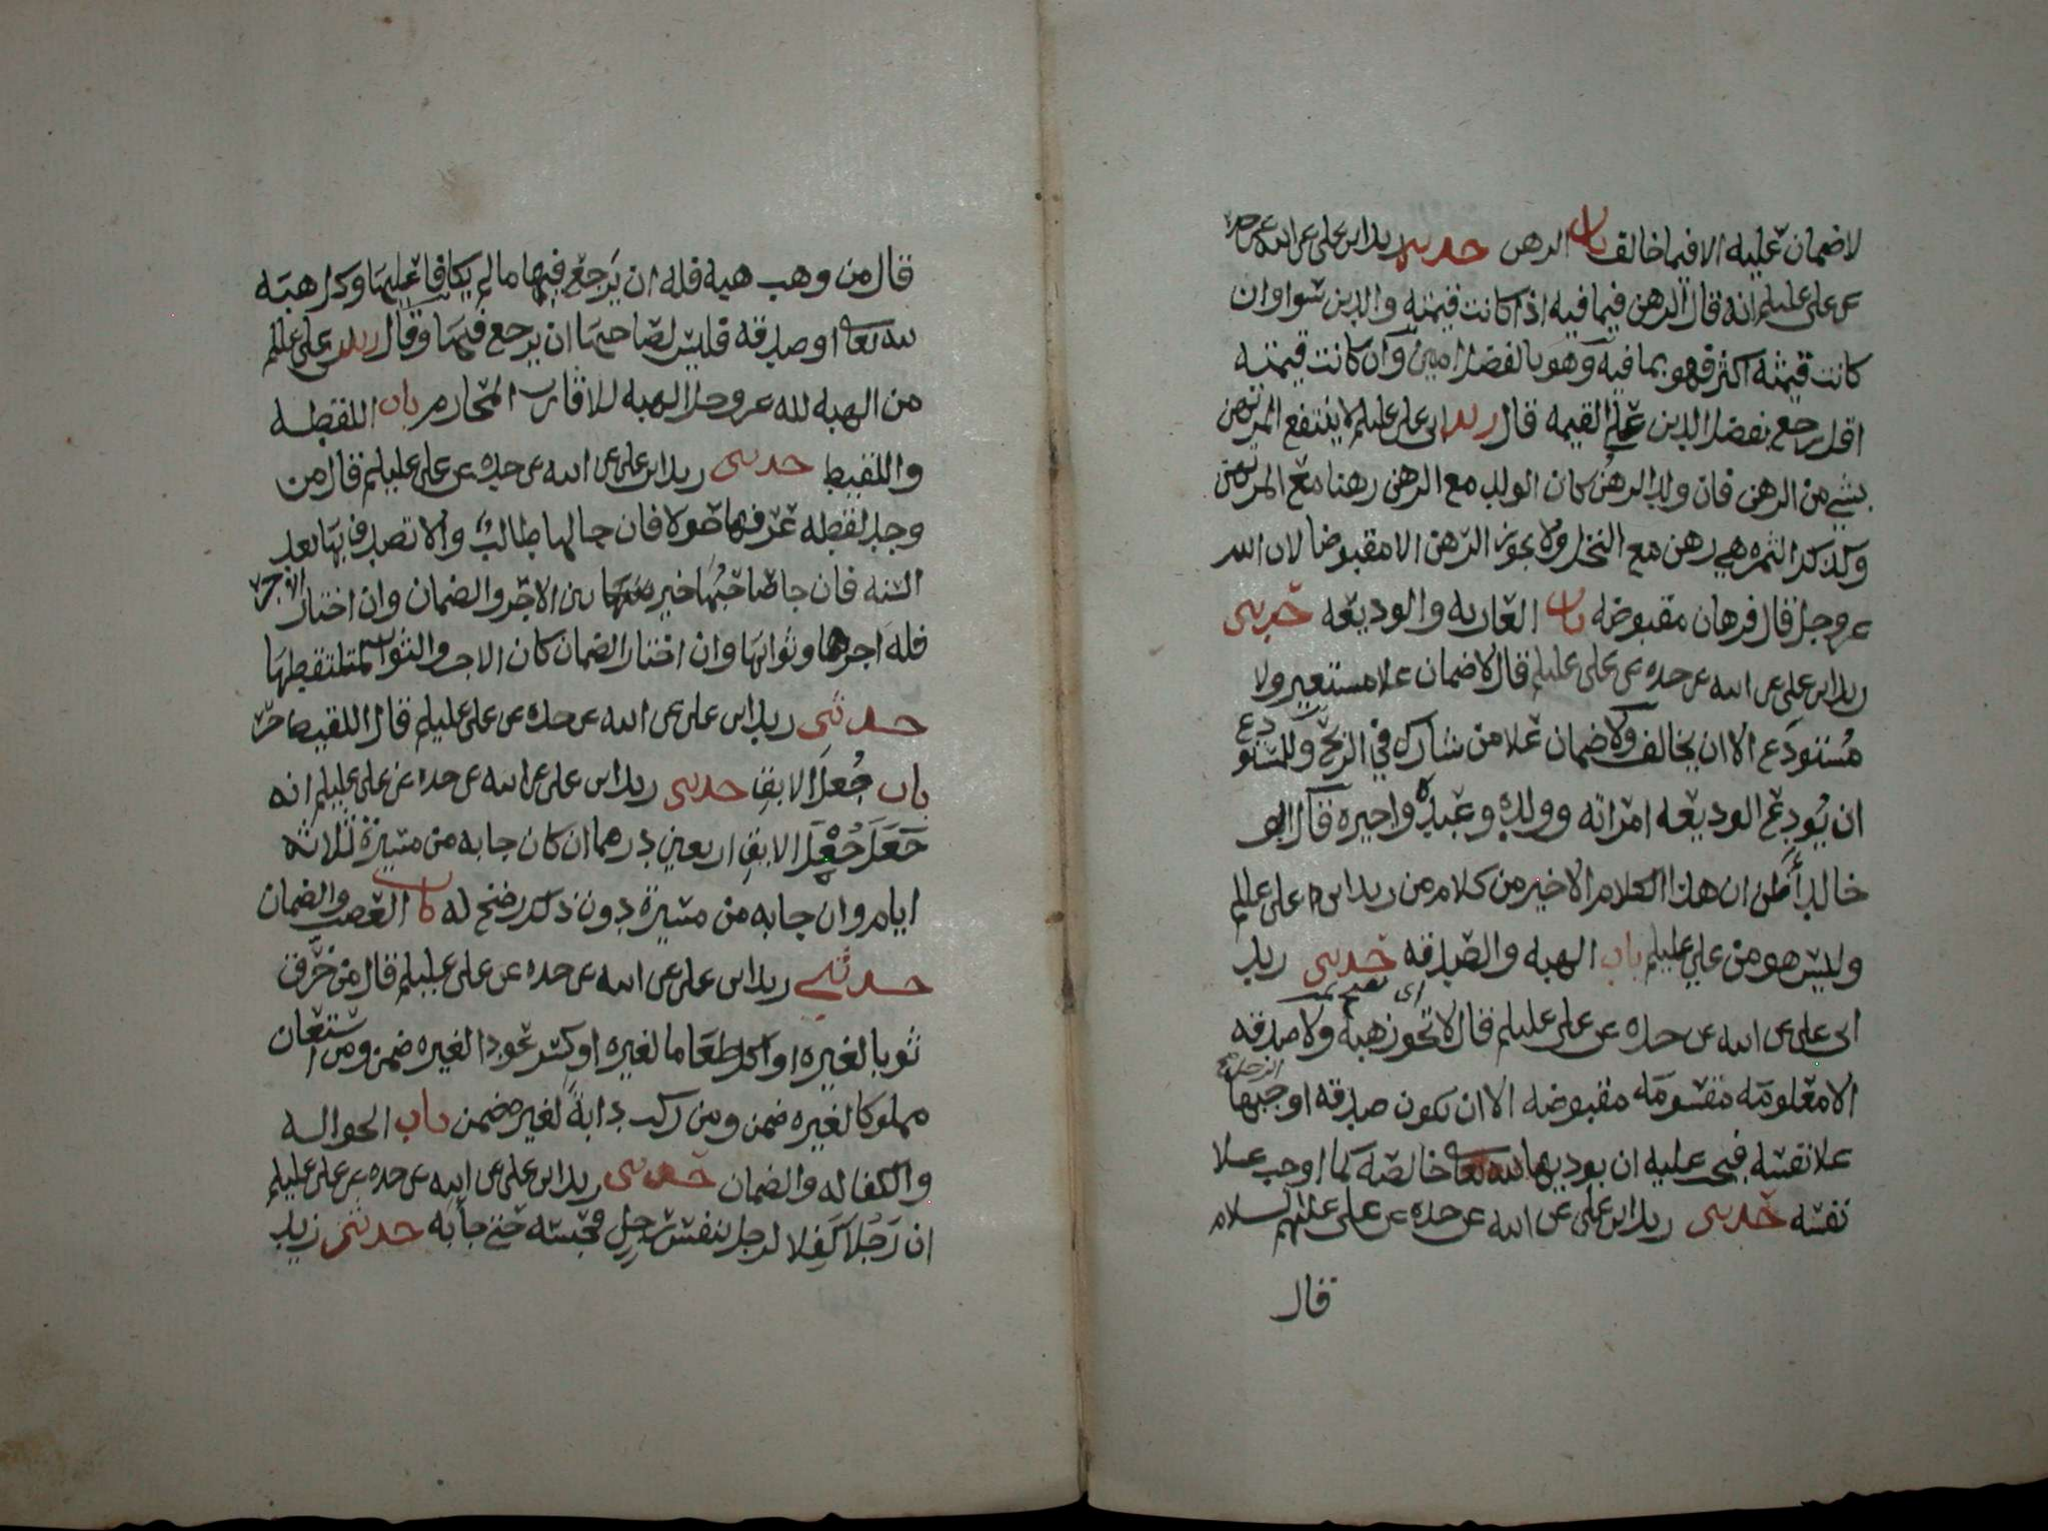 لا ضمان عليه الا فيما خالف باب الرهن حدثني زيد ابن علي عن ابيه عن جده
عن علي عليلم انه قال الرهن فيما فيه اذا كانت قيمته والدين سوا وان
كانت قيمته اكثر فهو بما فيه وهو بالفضل امين وان كانت قيمته
اقل رجع بفضل الدين على القيمه قال زيد ابن علي عليلم لا ينتفع المرتهن
بشي من الرهن فان ولد الرهن كان الولد مع الرهن رهنا مع المرتهن
وكذلك الثمره هي رهن مع النخل ولا يجوز الرهن الا مقبوضا لان الله
عز وجل قال فرهان مقبوضه باب العاريه والوديعه حدثني
زيد ابن علي عن ابيه عن جده عن علي عليلم قال لا ضمان علا مستعير ولا
مستودع الا ان يخالف ولا ضمان علا من شارك في الربح وللمستودع
ان يودع الوديعه امراته وولده وعبده واجيره قال ابو
خالد أظن ان هذا الكلام الاخير من كلام من زيد ابن علي عليلم
وليس هو من علي عليلم باب الهبه والصدقه حدثني زيد
ابن علي عن ابيه عن جده عن علي عليلم قال لا تجوز هبة ولا صدقه
الا معلومه مقسومه مقبوضه الا ان تكون صدقه اوجبها الرجل
علا نفسه فيجب عليه ان يوديها لله تعالى خالصه كما اوجب علا
نفسه حدثني زيد ابن علي عن ابيه عن جده عن علي عليهم السلام
قال
قال من وهب هبه فله ان يرجع فيها ما لم يكافا عليها وكل هبه
لله تعالى او صدقه فليس لصاحبها ان يرجع فيها وقال زيد بن علي عليلم
من الهبه لله عز وجل الهبه للاقارب المحارم باب اللقطه
واللقيط حدثني زيد ابن علي عن ابيه عن جده عن علي عليلم قال من
وجد لقطه عرفها حولا فان جا لها طالب والا تصدق بها بعد
السنه فان جا صاحبها خير بين الاجر والضمان وان اختار الاجر
فله اجرها وثوابها وان اختار الضمان كان الاجر والثواب لملتقطها
حدثني زيد ابن علي عن ابيه عن جده عن علي عليلم قال اللقيط حر
باب جعل الابق حدثني زيد ابن علي عن ابيه عن جده عن علي عليلم انه
جعل جعل الابق اربعين درهما ان كان جا به من مسيرة ثلاثه
ايام وان جا به من مسيرة دون ذلك رضخ له باب الغصب والضمان
حدثني زيد ابن علي عن ابيه عن جده عن علي عليلم قال من خرق
ثوبا لغيره او اكل طعاما لغيره او كسر عودا لغيره ضمن ومن استعان
مملوكا لغيره ضمن ومن ركب دابة لغيره ضمن باب الحواله
والكفاله والضمان حدثني زيد ابن علي عن ابيه عن جده عن علي عليلم
ان رجلا كفل لرجل بنفس رجل فحبسه حتى جا به حدثني زيد